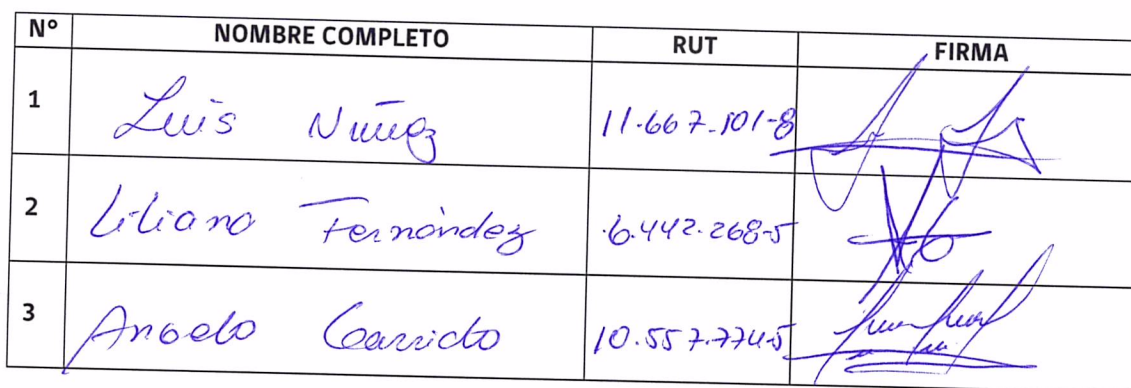 N° NOMBRE COMPLETO RUT FIRMA
1 Luis Nuñez 11.667.101-8
2 Liliana Fernández 6.442.268-5
3 Angelo Garrido 10.557.774-5